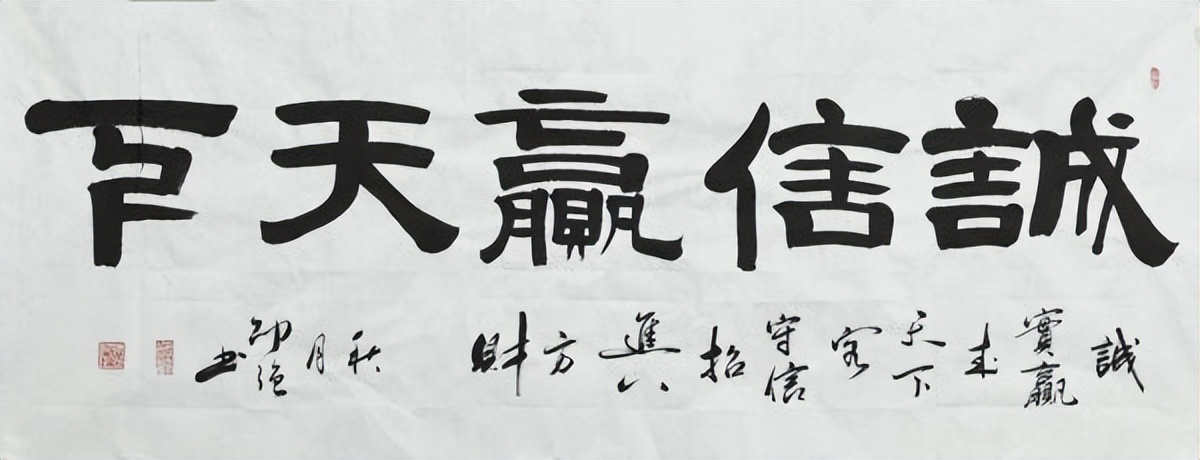 誠信贏天下
誠實贏来天下客守信招進八方財
秋月
书